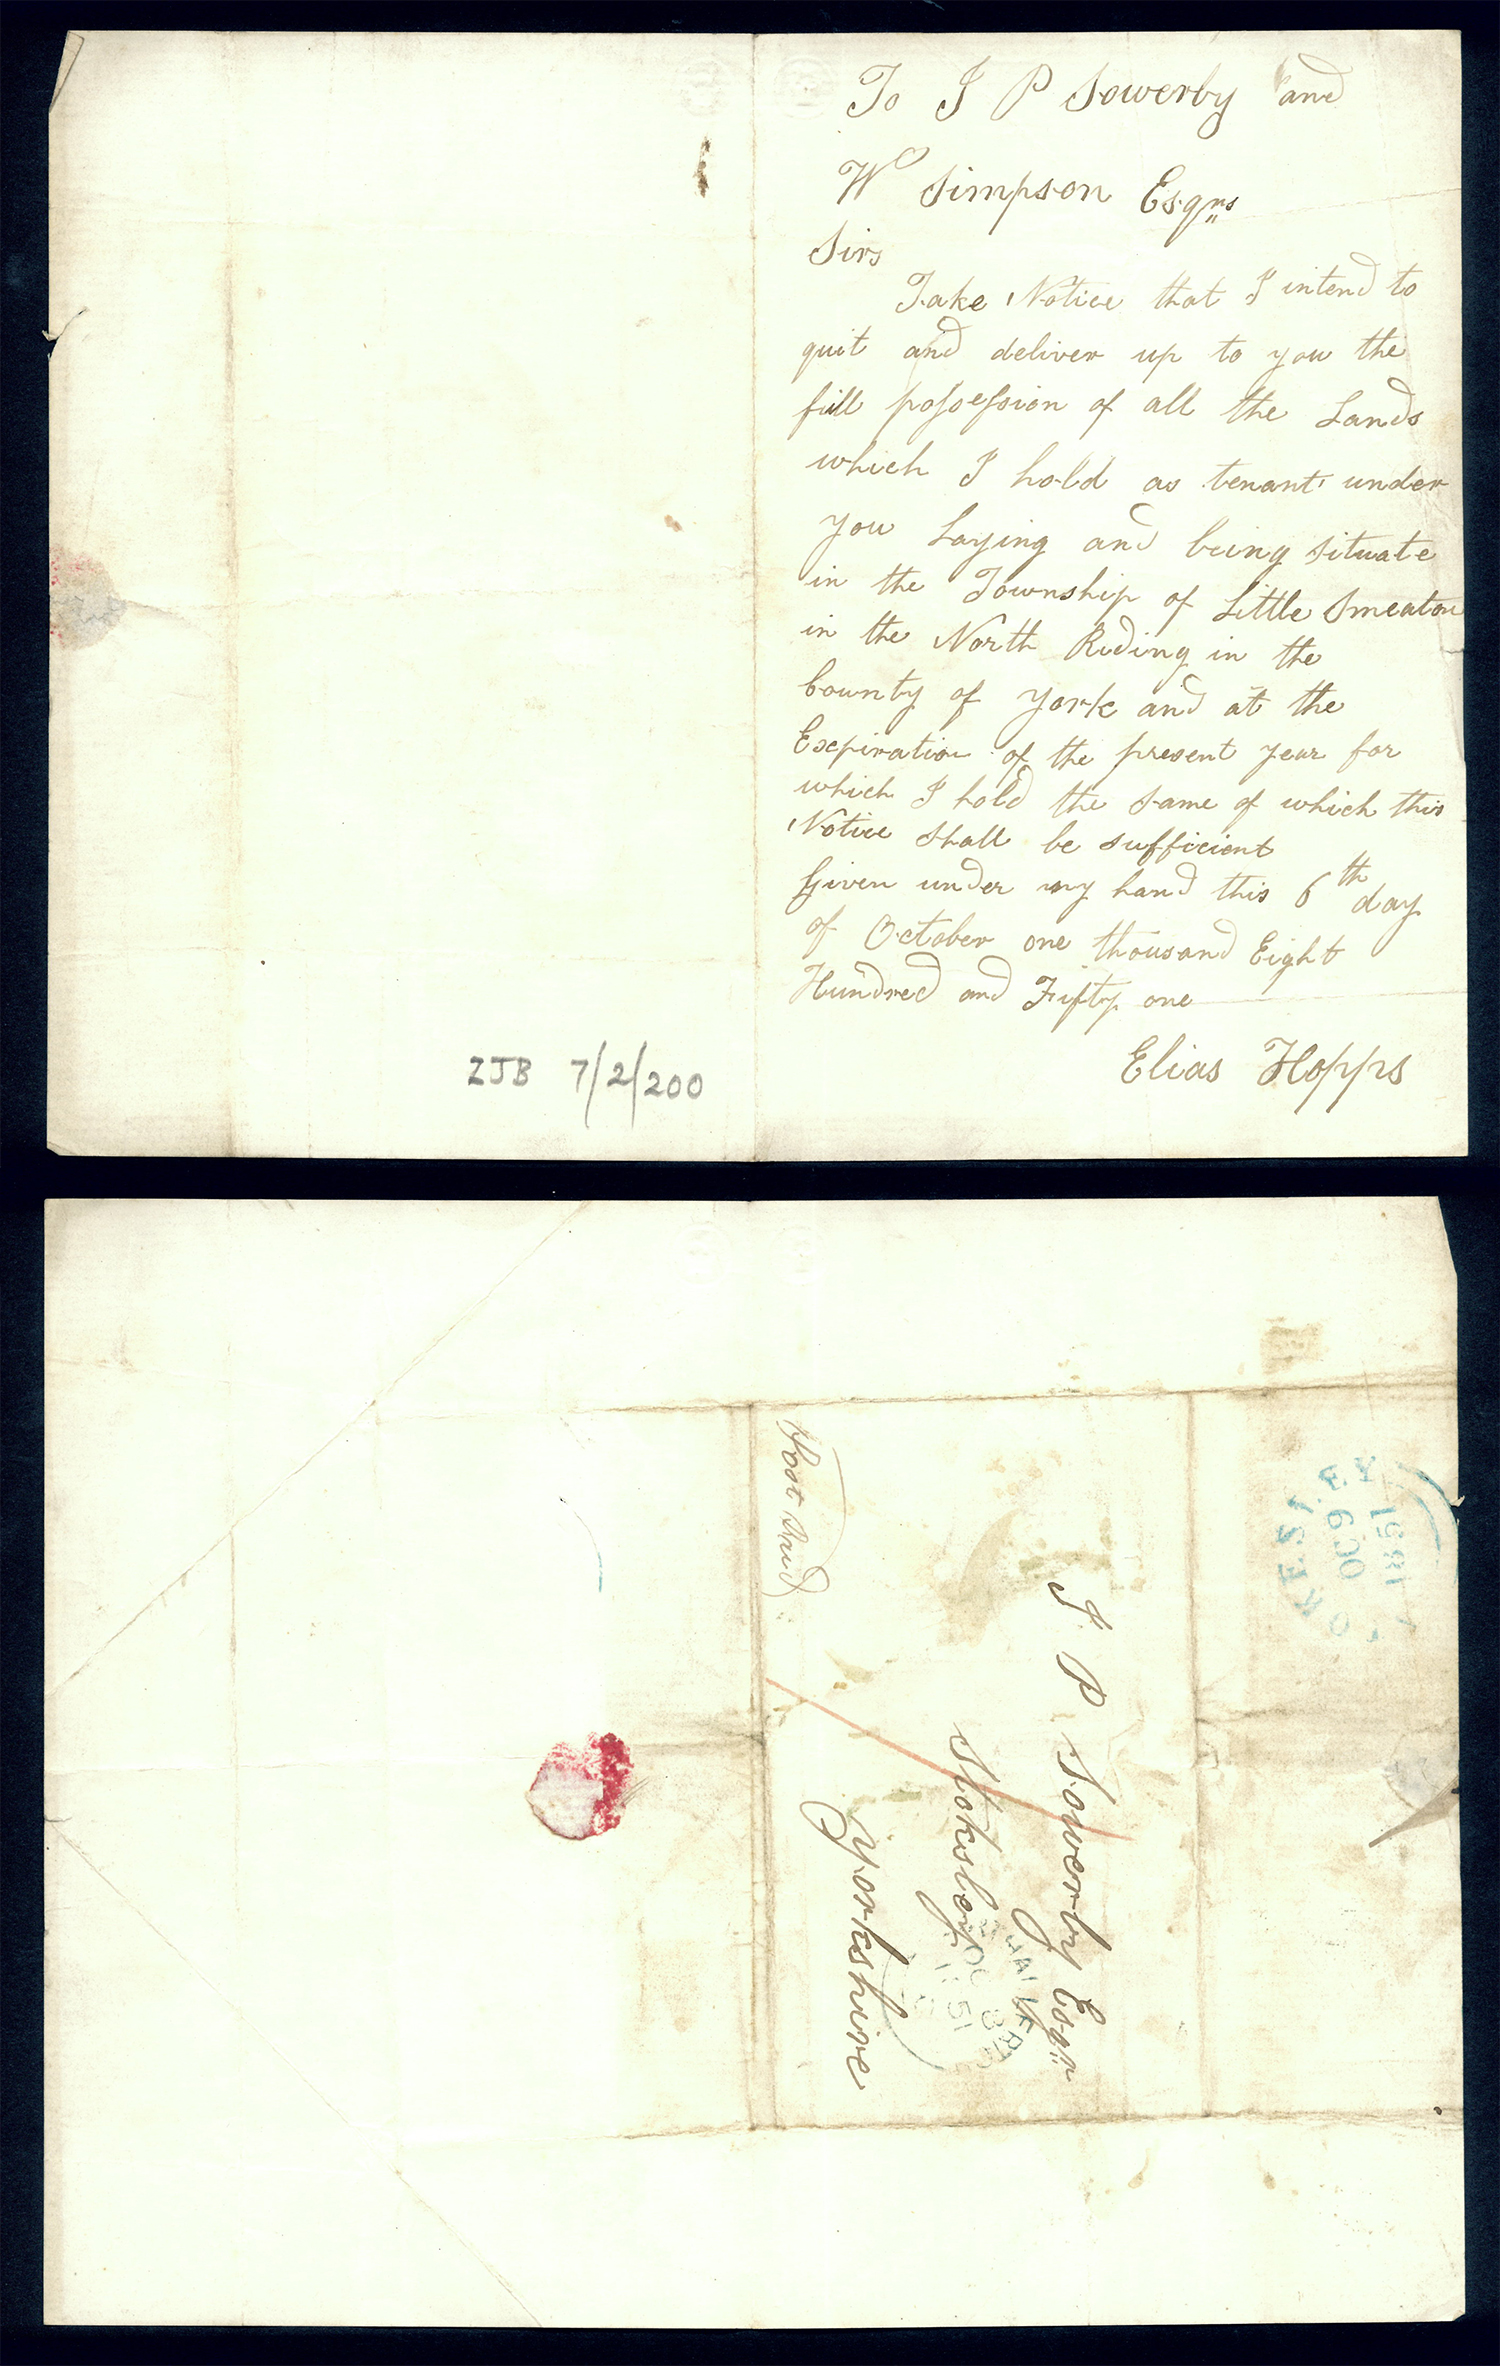 To J P Sowerby and
Wm Simpson Esqrs
Sirs
Take Notice that I intend to
quit and deliver up to you the
full possession of all the Lands
which I hold as tenant under
you Laying and being situate
in the Township of Little Smeaton
in the North Riding in the
County of York and at the
Expiration of the present year for
which I hold the same of which this
Notice shall be sufficient
Given under my hand this 6th day
of October one thousand Eight
Hundred and Fifty one
Elias Hopps
ZJB 7/2/200
J. P Sowerby Esqr
Stokesley
Yorkshire
Post Paid
OC 9
1851
OC 8
1851